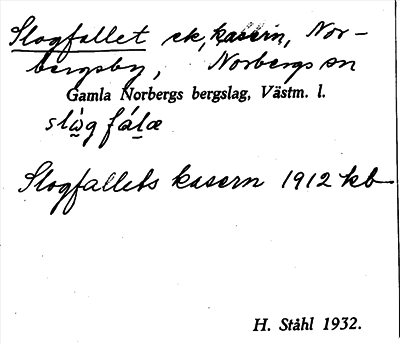 Slogfallet ek, kasern, Nor-
bergsby, Norbergs sn
Gamla Norbergs bergslag, Västm. l.
slὼg fálæ
Slogfallets kasern 1912 kb
H. Ståhl 1932.